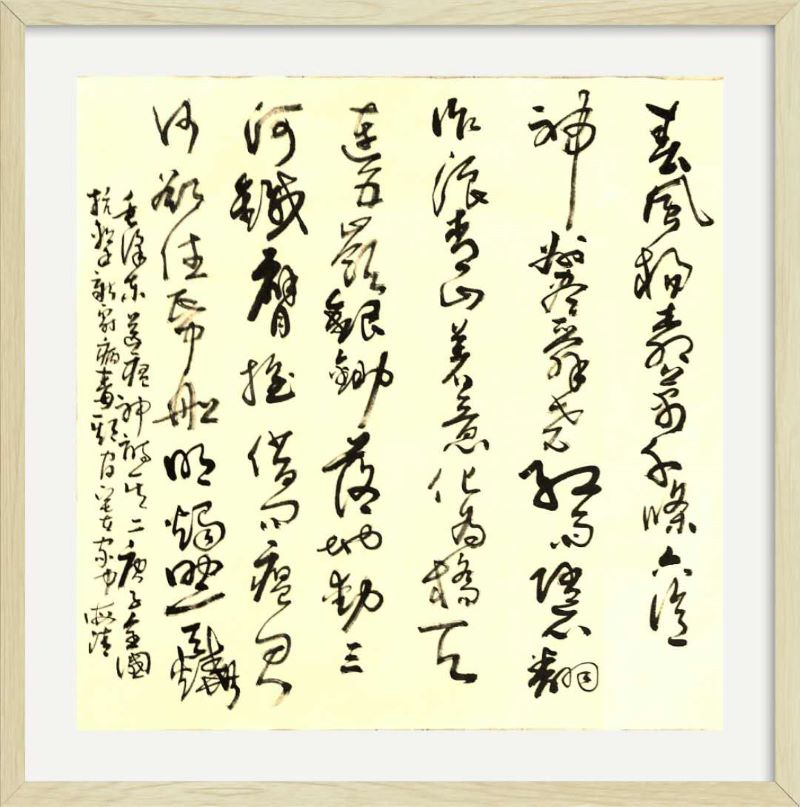 春風楊柳萬千條六億
神州盡舜堯紅雨隨心翻
作浪青山着意化為橋天
連五嶺銀鋤落地動三
河鐵臂搖借問瘟君
何欲往紙船明燭照天燒
毛澤東送瘟神詩其二庚子全國
抗擊新冠病毒期間家中